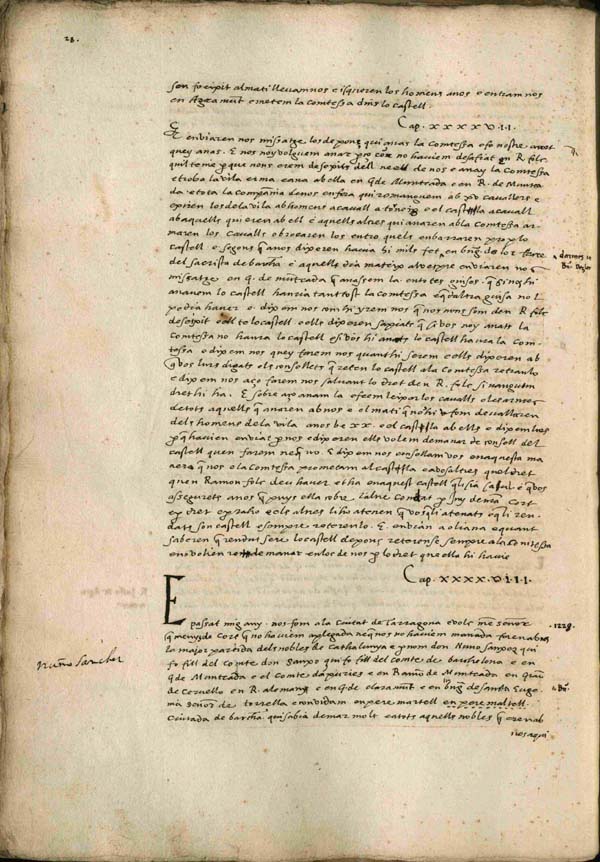 28.
son foexpit al mati llevam nos e isqueren los homens a nos e entram nos
en Agramunt e metem la comtessa dins lo castell.
Cap. XXXXVII.
E enviaren nos missatge los de pons qui anas la comtessa e fo nostre
quey anas. E nos noy volguem anar per ço com no haviem desafiat en R. folc
quil te me per que nons erem desexits dell ne ell de nos e anay la Comtessa
e troba la vila erma e ana ab ella en G. de Muntcada e en R. de Munta
da e tota la compañia de nos enfora qui romanguem ab XV cavallers e
exiren los de la vila ab homens a cavall a e el castlla a cavall
ab aquells qui eren ab ell e aquells altres qui anaren ab la Comtessa ar
maren los cavalls e brocaren los entro quels enbarraren per lo
castell e segons que a nos dixeren havia hi mils fet en de lor
del sacrista de barchª e aquells dia mateix al vespre enviaren nos
missatge en G. de muntcada que anassem la en totes guises. que si nos hi
anavem lo castell hauria tantost la Comtessa e que daltra guisa nol
podia haver e dixem nos com hi yrem nos que nos nons som den R. folc
desexit e ell te lo castell e ells dixeren sapiats que si vos noy anats la
Comtessa no haura lo castell e si vos hi anats lo castell haura la Com
tessa e dixem nos quey farem nos quant hi serem e ells dixeren ab
que vos lurs digats els consellets que reten lo castell a la Comtessa retran lo
e dixem nos aço farem nos salvant lo dret den R. folc si nangun
dret hi ha. E sobre aço anam la e feem leixar los cavalls e les armes
de tots aquells que anaren ab nos e el mati que nos hi fom devallaren
dels homens de la vila a nos be XX. e el castlla ab ells e dixem los
perque havien enviat per nos e dixeren ells volem demanar de consell del
castell quen farem ne que no. E dixem nos consellam vos en aquesta ma
nera que nos e la Comtessa prometam al castlla e a vosaltres quel dret
quen Ramon folc deu haver e tha en aquest castell que li sia salvat e que vos
assegurets a nos que puys ella sobre laltre Comtat per ny deman Cort
ey dret e per ço e els altres li ho atenen que vos li atenats e que li ren
dats son castell e sempre reteren lo. E endcan a oliana e quant
saberen que rendut sere lo castell de pons reterense sempre a la Comtessa
e no volien demanar enlos de nos per lo dret que ella hi havie
Cap. XXXXVIII.
E passat mig any. nos fom a la Ciutat de Tarragona e volc nre señor
que menys de Cort que no haviem aplegada ne que nos no haviem manada foren ab nos
la major partida dels nobles de Cathalunya e per nom don Nuno Sanxez qui
fo fill del Comte don Sanxo qui fo fill del comte de barchelona e en
G. de Montcada e el Comte dampuries e en Ramon de Montcada en Grau
de Cervello en R. alemany e en G. de claramunt e en Bng. de santa Euge
nia señor de torrella e convidam en pere martell en pere maltell
Ciutada de barchª. qui sabia de mar molt e a tots aquells nobles que eren ab
nos aqui
1229.
Nuño Sanchez